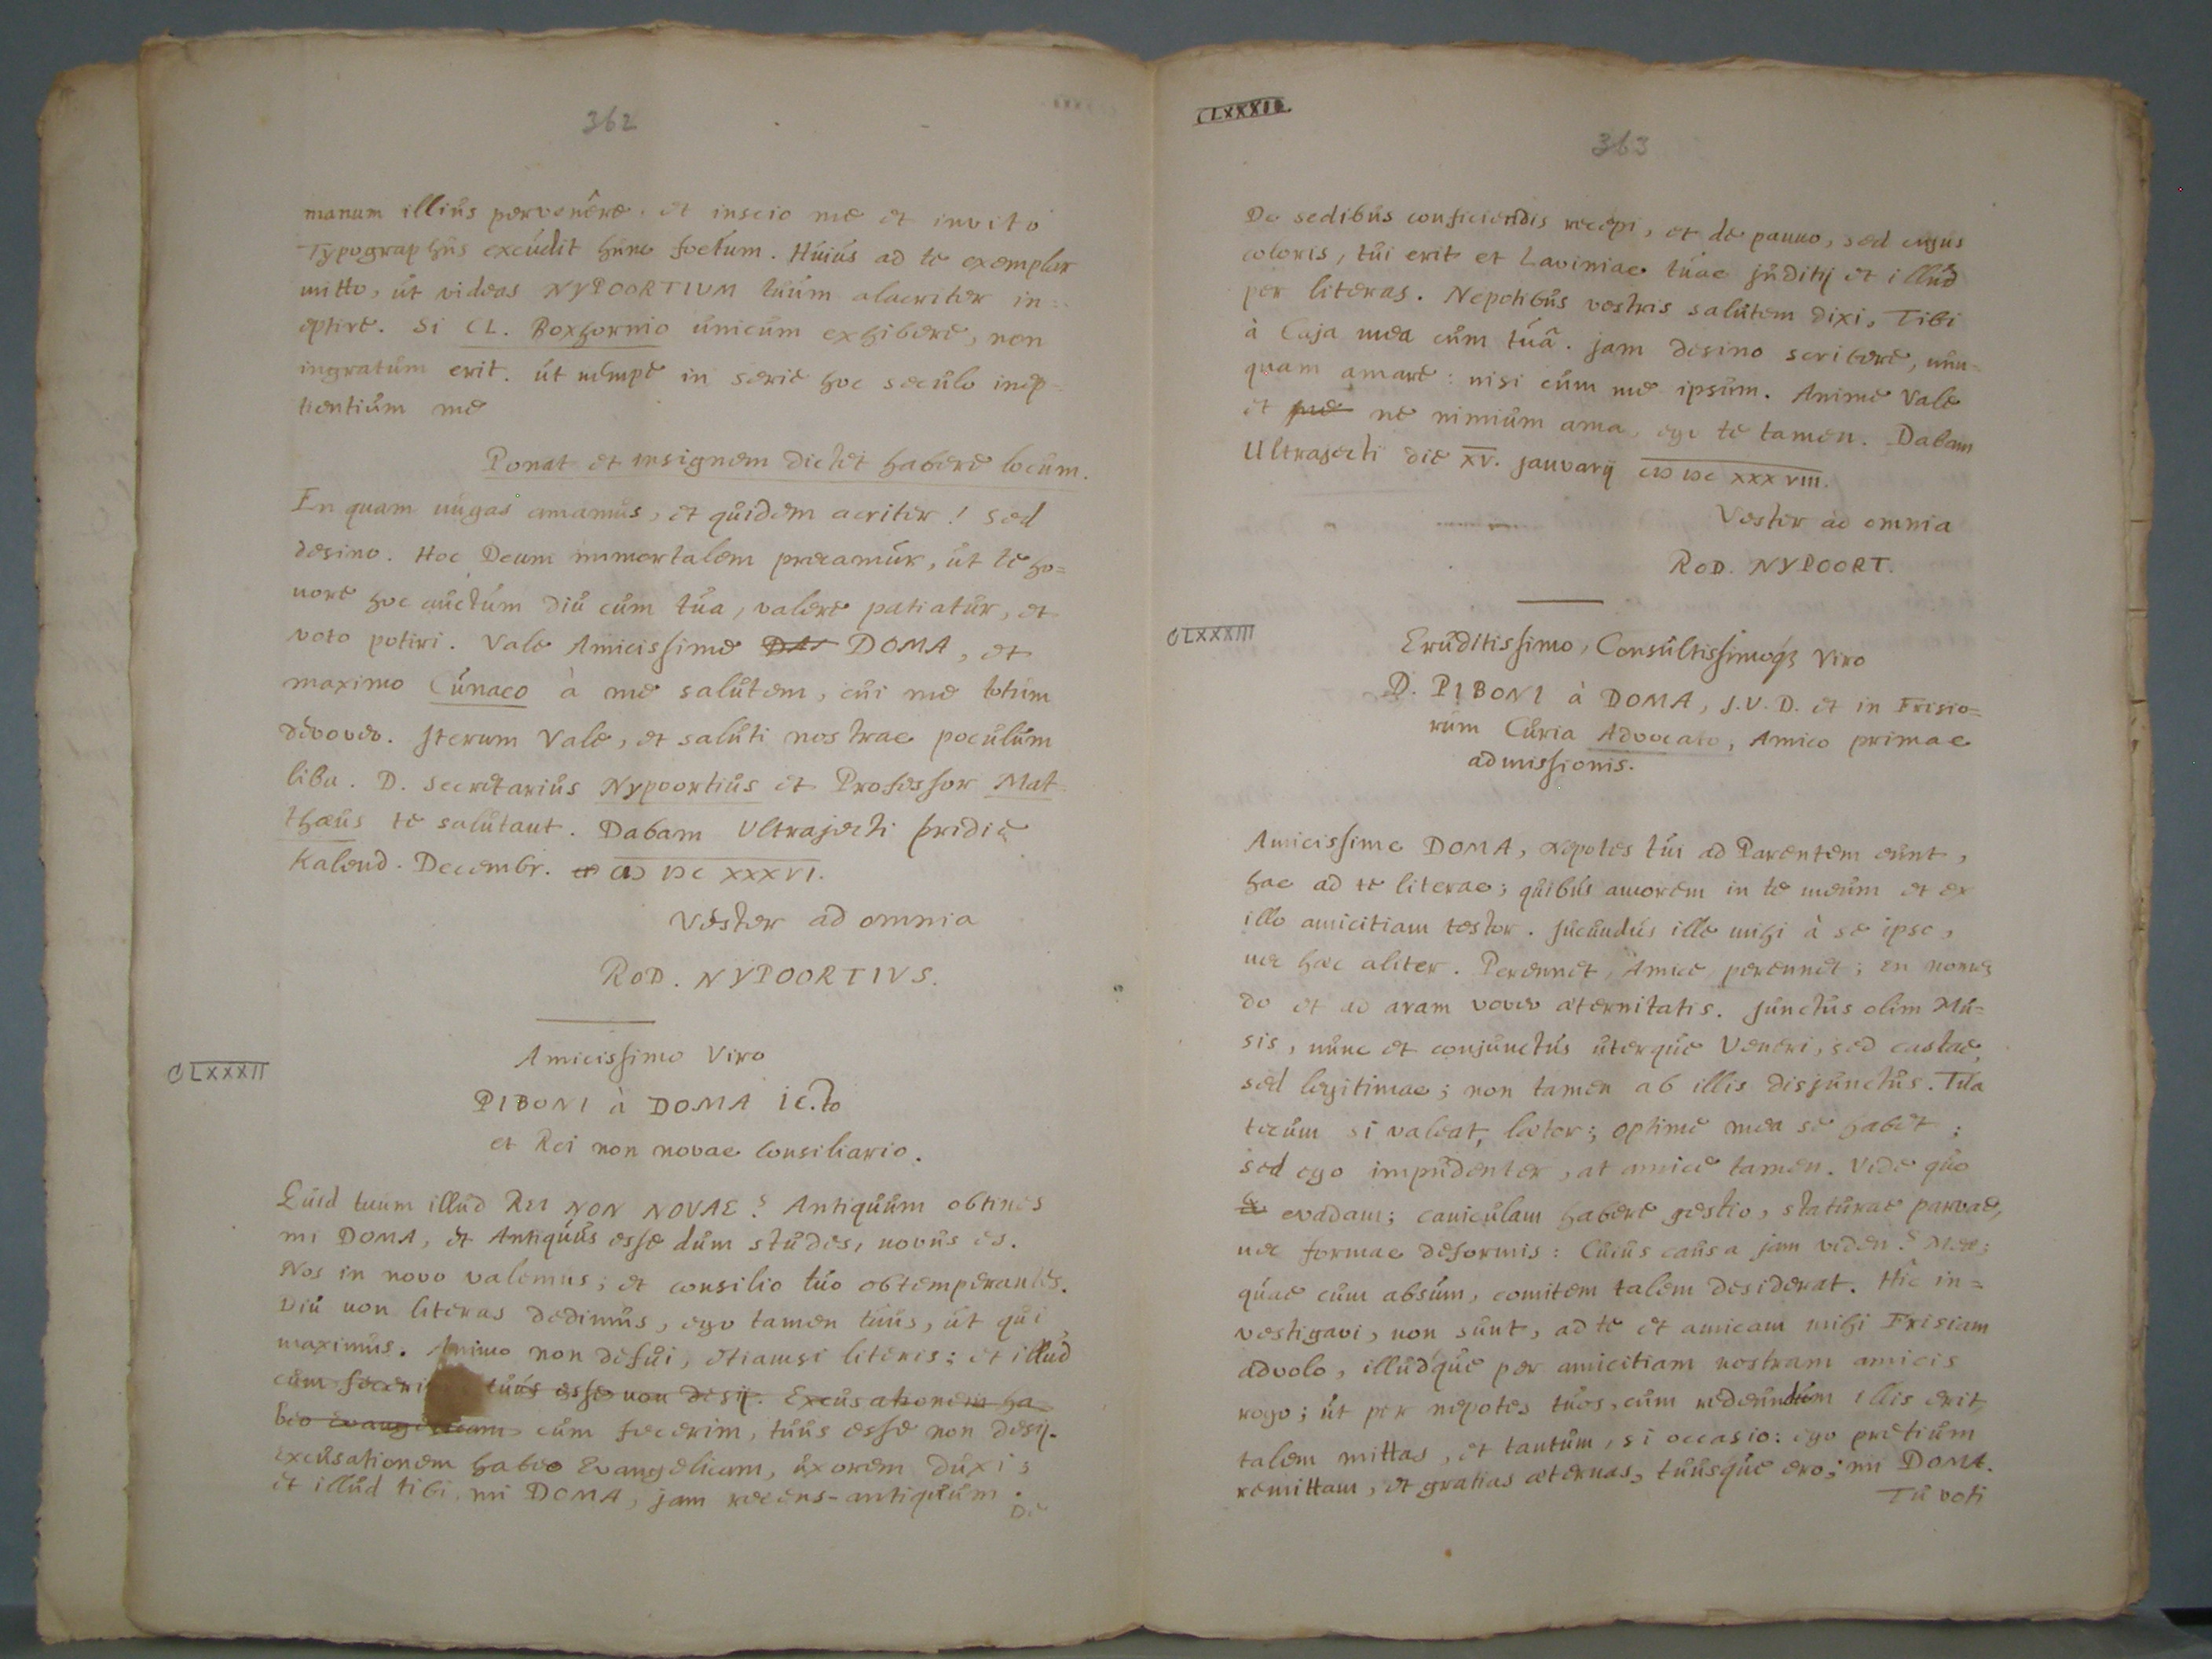 362
manum illius pervenêre. et inscio me et invito
Typographus excudit hunc foetum. Huius ad te exemplar
mitto, ut videas NYPOORTIUM tuum alacriter in=
eptire. Si CL. Boxhornio unicum exhibere, non
ingratum erit. ut nempe in serie hoc seculo inep=
tientium me
Ponat et insignem dictet habere locum.
En quam nugas amamus, et quidem acriter! Sed
desino. Hoc Deum immortalem precamur, ut te ho=
nore hoc auctum diu cum tua, valere patiatur, et
voto potiri. Vale Amicissime DOMA, et
maximo Cunaeo à me salutem, cui me totum
devoveo. Iterum Vale, et saluti nostrae poculum
liba. D. Secretarius Nypoortius et Professor Mat=
thæus te salutant. Dabam Ultrajecti pridie
Kalend. Decembr. CIƆ IƆC XXXVI.
Vester ad omnia
ROD. NYPOORTIVS.
CLXXXII
Amicissimo Viro
PIBONI à DOMA IC.to
et Rei non novae Consiliario.
Quid tuum illud REI NON NOVAE? Antiquum obtines
mi DOMA, et Antiquus esse dum studes, novus es.
Nos in novo valemus; et consilio tuo obtemperantes.
Diu non literas dedimus, ego tamen tuus, ut qui
maximus. Animo non defui, etiamsi literis; et illud
cum feceri tuus esse non desij. Excusationem ha=
beo Evangelicam cum fecerim, tuus esse non desij.
excusationem habeo Evangelicam, uxorem duxi;
et illud tibi, mi DOMA, jam recens-antiquum.
De
CLXXXII
363
De sedibus conficiendis recepi, et de panno, sed cujus
coloris, tui erit et Laviniae tuae juditij et illud
per literas. Nepotibus vestris salutem dixi, Tibi
à Caja mea cum tuâ. jam desino scribere, nun=
quam amare: nisi cum me ipsum. Anime Vale
et me ne nimium ama, ego te tamen. Dabam
Ultrajecti die XV. januarij CIƆ IƆC XXXVIII.
Vester ad omnia
ROD. NYPOORT.
CLXXXIII
Eruditissimo, Consultissimoq3 Viro
D. PIBONI à DOMA, J.V.D. et in Frisio=
rum Curia Advocato, Amico primae
admissionis.
Amicissime DOMA, Nepotes tui ad Parentem eunt,
hae ad te literae; quibus amorem in te meum et ex
illo amicitiam testor. Jucundus ille mihi à se ipso,
nec hæc aliter. Perennet, Amice, perennet; en
do et ad aram voveo æternitatis. Junctus olim Mu=
sis, nunc et conjunctus uterque Veneri, sed castae,
sed legitimae; non tamen ab illis disjunctus. Tua
tecum si valeat, lætor; optime mea se habet;
sed ego impudenter, at amice tamen. Vide quo
evadam; caniculam habere gestio, staturae parvae,
nec formae deformis: Cuius causa jam viden? Meæ;
quae cum absum, comitem talem desiderat. Hîc in=
vestigavi, non sunt, ad te et amicam mihi Frisiam
advolo, illudque per amicitiam nostram amicis
rogo; ut per nepotes tuos, cum redeundum illis erit,
talem mittas, et tantum, si occasio: ego pretium
remittam, et gratias æternas, tuusque ero, mi DOMA.
Tu voti